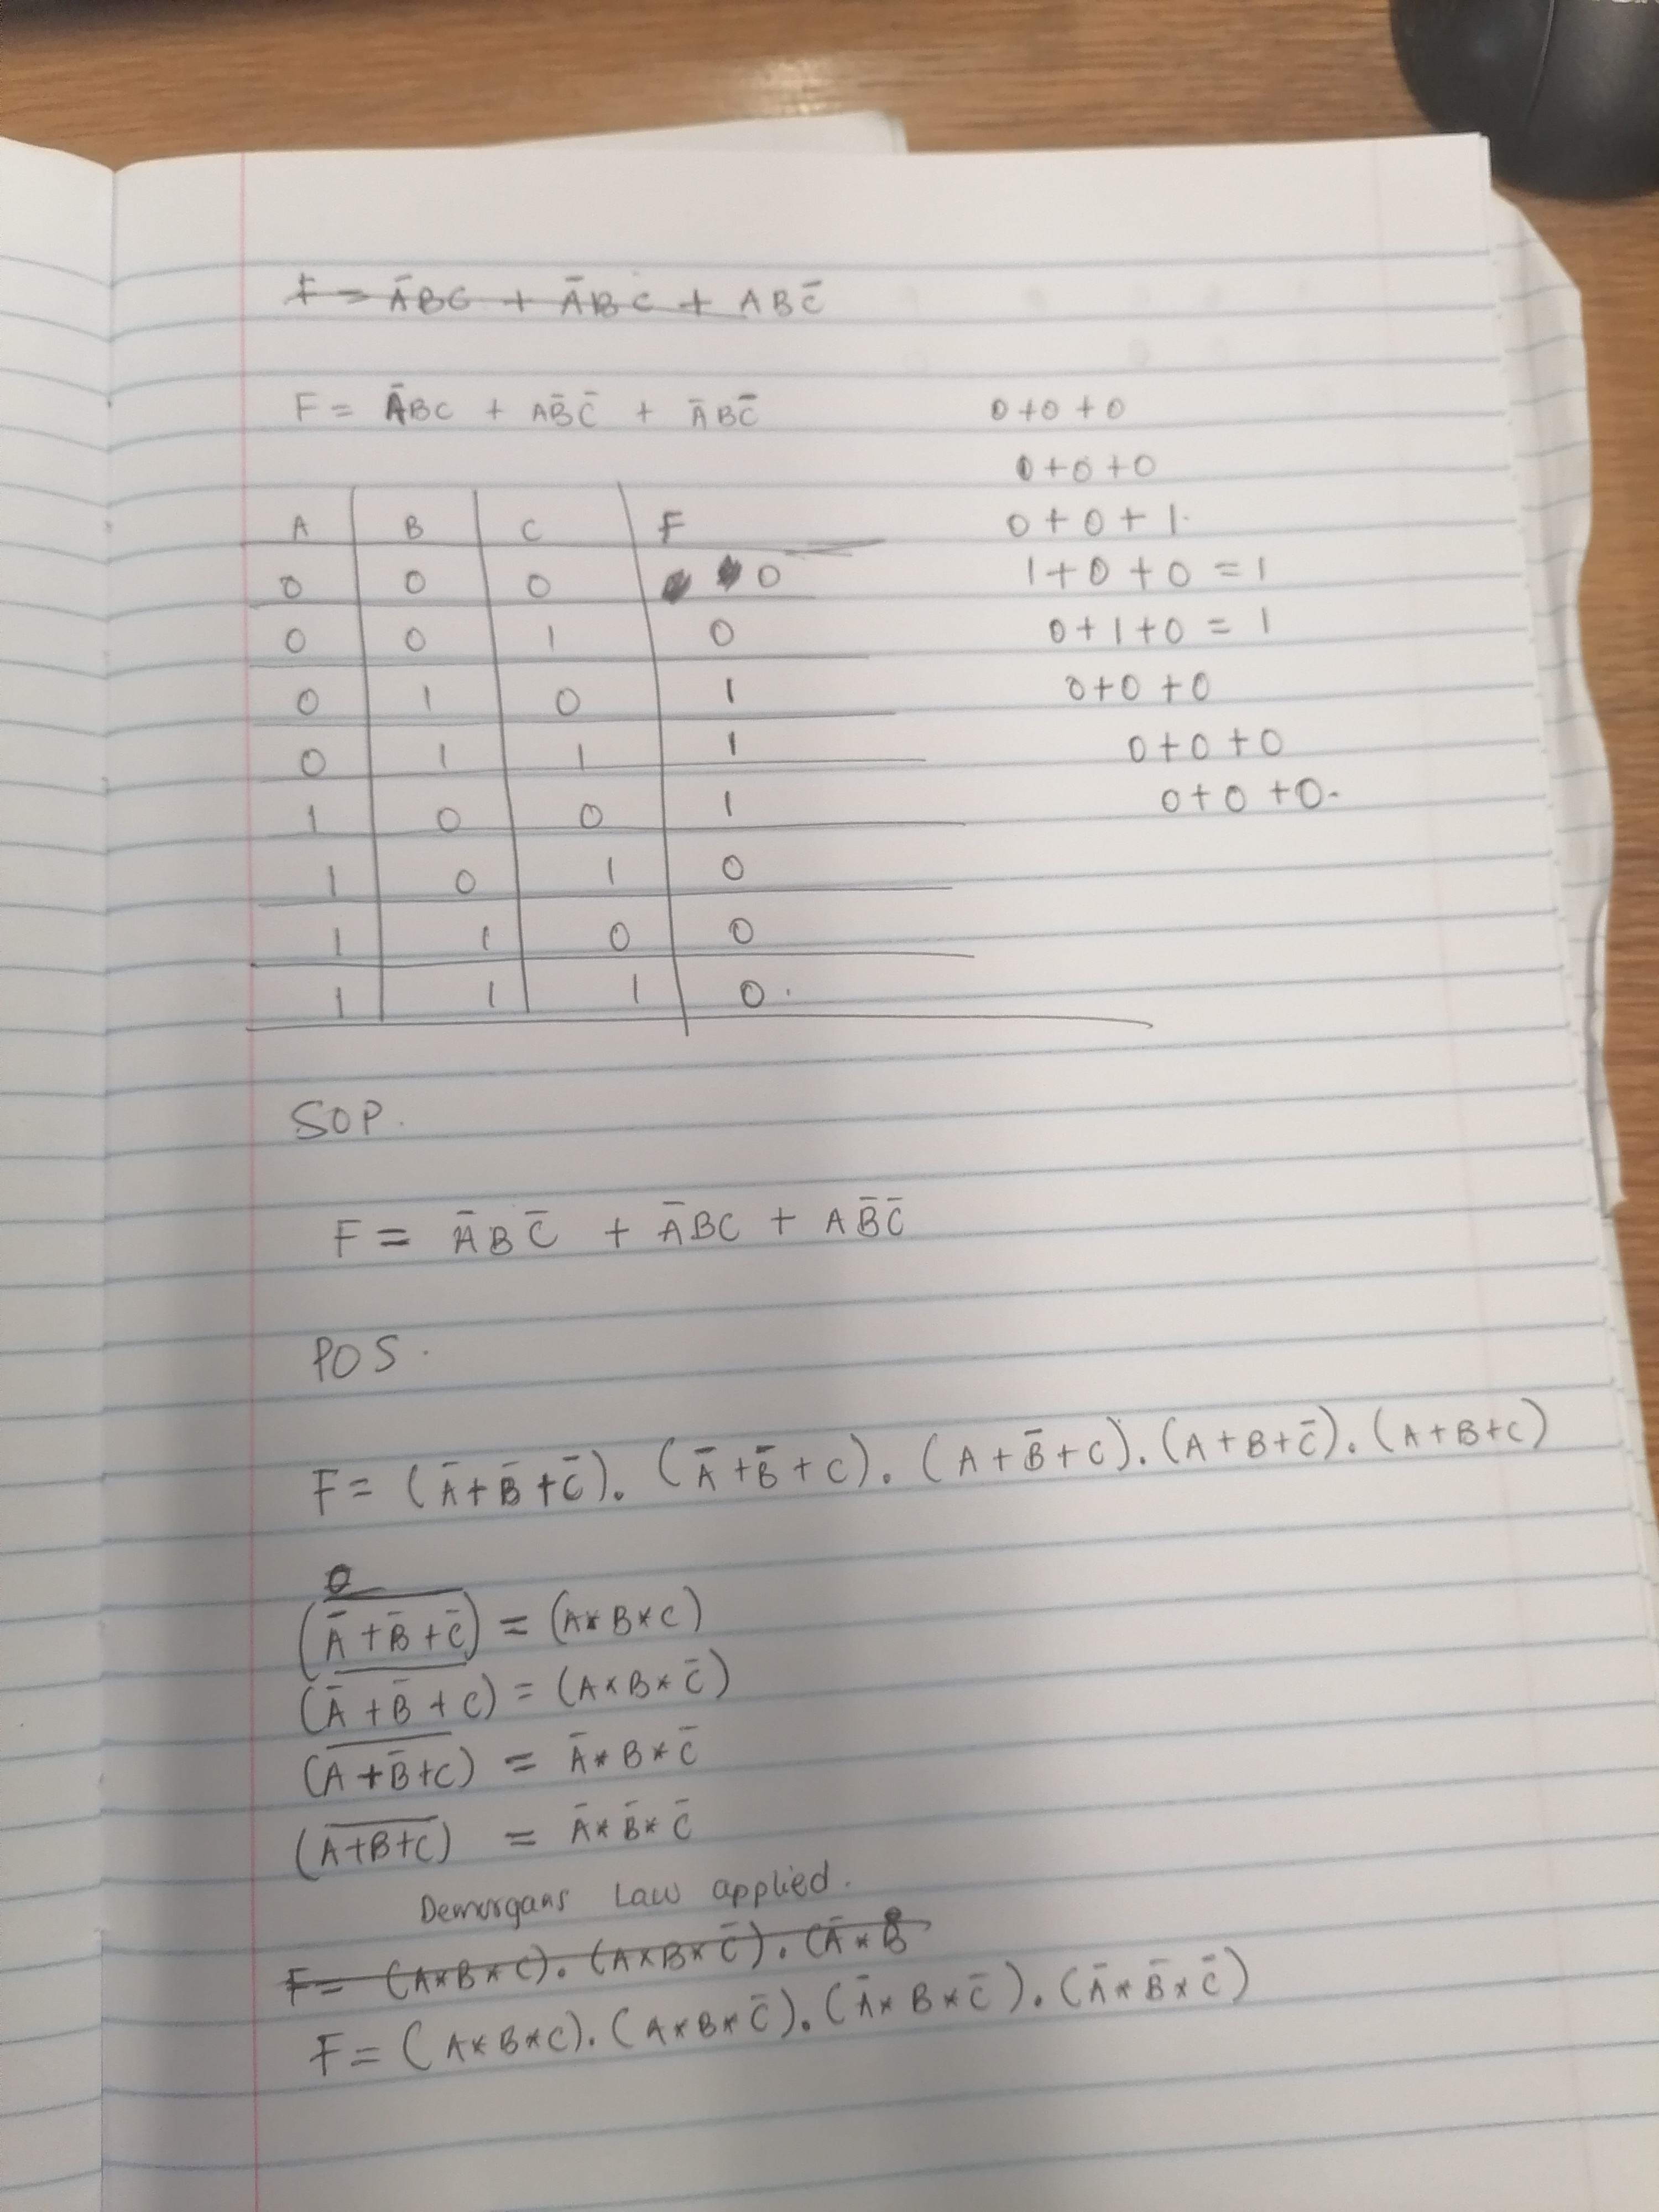 F = A̅BC + A̅BC + ABC̅
F = A̅BC + AB̅C̅ + A̅BC̅
0+0+0
0+0+0
0+0+1.
1+0+0 = 1
0+1+0 = 1
0+0+0
0+0+0
0+0+0.
A B C F
0 0 0 0
0 0 1 0
0 1 0 1
0 1 1 1
1 0 0 1
1 0 1 0
1 1 0 0
1 1 1 0.
SOP.
F = A̅BC̅ + A̅BC + AB̅C̅
POS.
F = (A̅+B̅+C̅). (A̅+B̅+C). (A+B̅+C). (A+B+C̅). (A+B+C)
(A̅+B̅+C̅) = (A*B*C)
(A̅+B̅+C) = (A*B*C̅)
(A+B̅+C) = A̅*B*C̅
(A+B+C) = A̅*B̅*C̅
Demorgans Law applied.
F = (A*B*C). (A*B*C̅). (A̅*B
F = (A*B*C). (A*B*C̅). (A̅*B*C̅). (A̅*B̅*C̅)